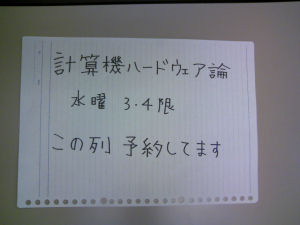 計算機ハードウェア論
水曜 3・4限
この列 予約してます